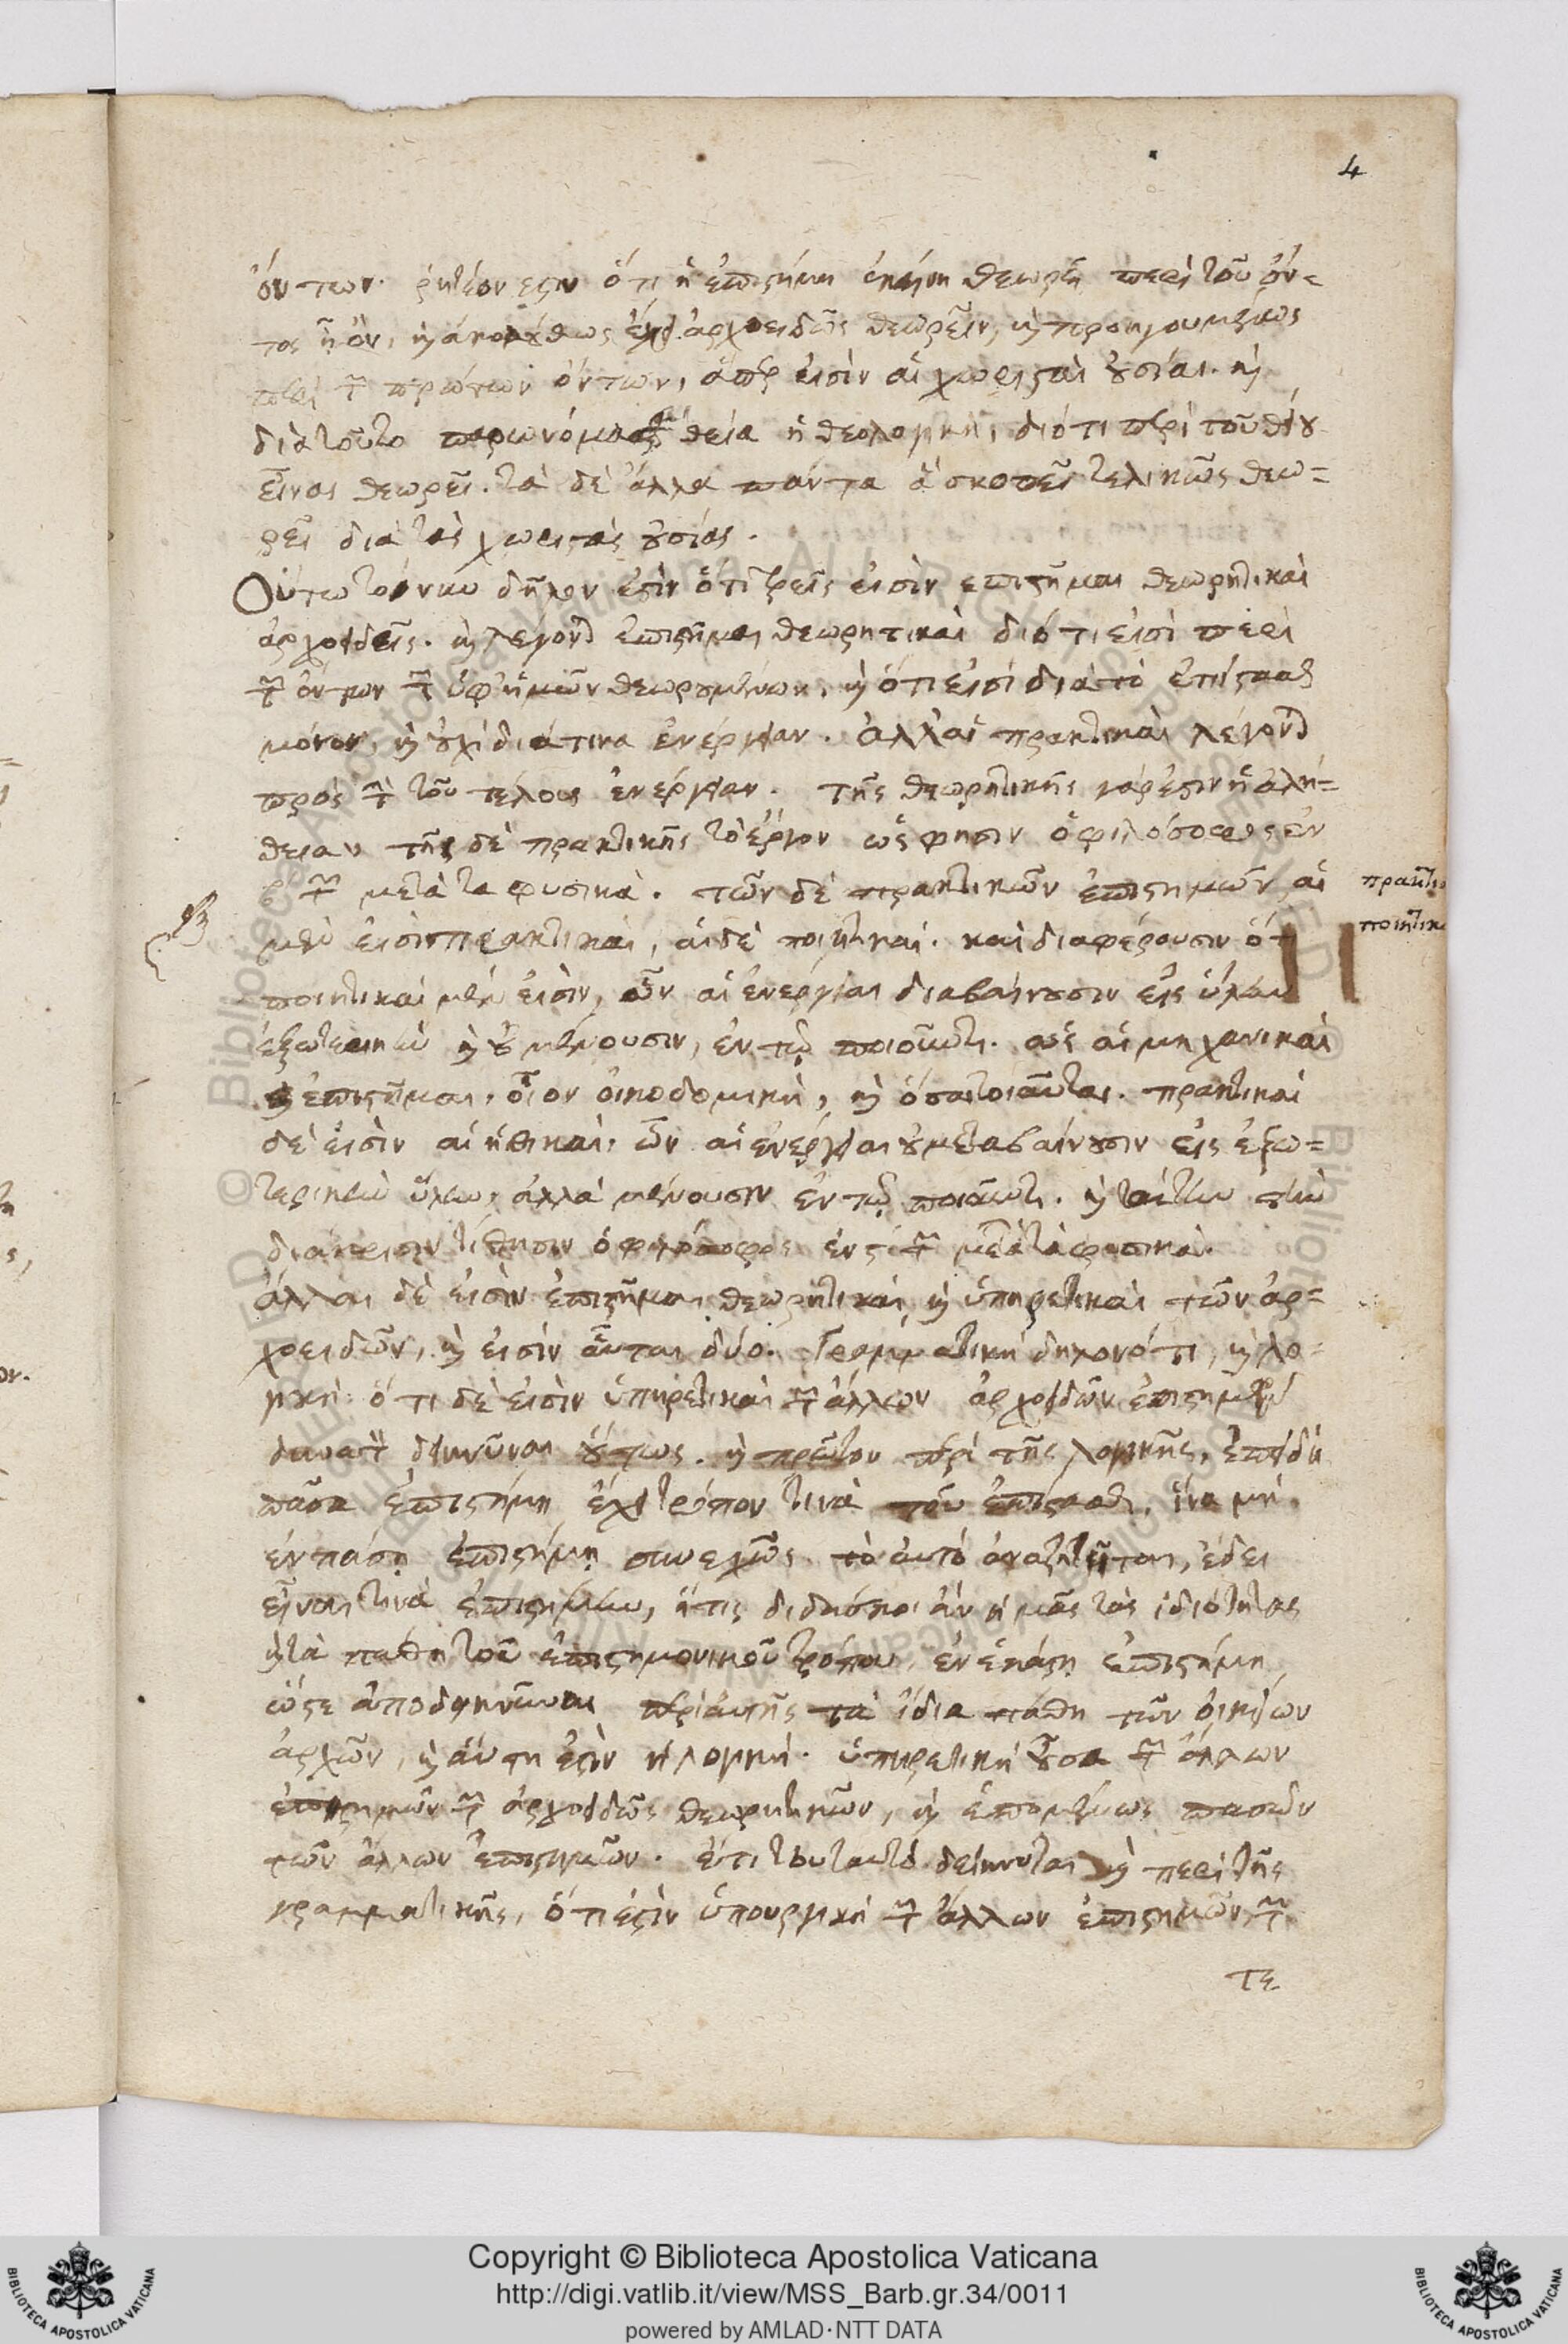 4
ὄντων. ῥητέον ἐστιν ὅτι ἡ ἐπιστήμη ἐκείνη θεωρεῖ περὶ τοῦ ὄν-
τος ᾗ ὄν, καὶ ἀκολούθως ἔχει ἀρχοειδῶς θεωρεῖν, καὶ προηγουμένως
περὶ τῶν πρώτων ὄντων, ἅπερ εἰσὶν αἱ χωρισταὶ οὐσίαι. καὶ
διὰ τοῦτο θεία ἢ θεολογικὴ, διότι περὶ τοῦ θείου
εἶναι θεωρεῖ. τὰ δὲ ἄλλα πάντα ἃ σκοπεῖ τελικῶς θεω-
ρεῖ διὰ τὰς χωριστὰς οὐσίας.
Οὕτω τοίνυν δῆλον ἐστὶν ὅτι τρεῖς εἰσὶν ἐπιστῆμαι θεωρητικαὶ
ἀρχοειδεῖς. καὶ λέγονται ἐπιστῆμαι θεωρητικαὶ διότι εἰσὶ περὶ
τῶν ὄντων τῶν ὑφ' ἡμῶν θεωρουμένων, καὶ ὅτι εἰσὶ διὰ τὸ ἐπίστασθαι
μόνον, καὶ οὐχὶ διά τινα ἐνέργειαν. ἀλλ' αἱ πρακτικαὶ λέγονται
πρὸς τὴν τοῦ τέλους ἐνέργειαν. τῆς θεωρητικῆς γάρ ἐστιν ἡ ἀλή-
θεια τῆς δὲ πρακτικῆς τὸ ἔργον ὥς φησιν ὁ φιλόσοφος ἐν
β τῶν μετὰ τὰ φυσικά. τῶν δὲ πρακτικῶν ἐπιστημῶν αἱ
πρακτικ
ποιητικ
μὲν εἰσὶ πρακτικαὶ, αἱ δὲ ποιητικαί. καὶ διαφέρουσιν ὅτι
ποιητικαὶ μέν εἰσιν, ὧν αἱ ἐνέργειαι διαβαίνουσιν εἰς ὕλην
ἐξωτερικὴν καὶ οὐ μένουσιν, ἐν τῷ ποιοῦντι. ὡς αἱ μηχανικαὶ
ἐπιστῆμαι, οἷον οἰκοδομικὴ, καὶ ὅσαι τοιαῦται. πρακτικαὶ
δέ εἰσιν αἱ ἠθικαὶ. ὧν αἱ ἐνέργειαι οὐ μεταβαίνουσιν εἰς ἐξω-
τερικὴν ὕλην, ἀλλὰ μένουσιν ἐν τῷ ποιοῦντι. καὶ ταύτην τὴν
διάκρισιν τίθησιν ὁ φιλόσοφος ἐν ϛ τῶν μετὰ τὰ φυσικά.
ἄλλαι δὲ εἰσὶν ἐπιστῆμαι θεωρητικαὶ, καὶ ὑπηρετικαὶ τῶν ἀρ-
χοειδῶν, καὶ εἰσὶν αὗται δύο. Γραμματικὴ δηλονότι, καὶ λο-
γική. ὅτι δέ εἰσιν ὑπηρετικαὶ τῶν ἄλλων ἀρχοειδῶν ἐπιστημῶν
δυνατὸν δεικνῦναι οὕτως. καὶ πρῶτον περὶ τῆς λογικῆς, ἐπειδὴ
πᾶσα ἐπιστήμη ἔχει τρόπον τινὰ τοῦ ἐπίστασθαι, ἵνα μὴ
ἐν πάσῃ ἐπιστήμῃ συνεχῶς τὸ αὐτὸ ἀναζητεῖται, ἔδει
εἶναι τινὰ ἐπιστήμην, ἥτις διδάσκοι ἂν ἡμᾶς τὰς ἰδιότητας
καὶ τὰ πάθη τοῦ ἐπιστημονικοῦ τρόπου, ἐν ἑκάστῃ ἐπιστήμῃ
ὥστε ἀποδεικνῦναι περὶ αὐτῆς τὰ ἴδια πάθη τῶν οἰκείων
ἀρχῶν, καὶ αὕτη ἐστὶν ἡ λογική. ὑπηρετικὴ οὖσα τῶν ἄλλων
ἐπιστημῶν τῶν ἀρχοειδῶς θεωρητικῶν, καὶ ἑπομένως πασῶν
τῶν ἄλλων ἐπιστημῶν. ἔτι τοῦτ' αὐτὸ δείκνυται καὶ περὶ τῆς
γραμματικῆς, ὅτι ἐστὶν ὑπουργικὴ τῶν ἄλλων ἐπιστημῶν τῶν
τε
Copyright © Biblioteca Apostolica Vaticana
http://digi.vatlib.it/view/MSS_Barb.gr.34/0011
powered by AMLAD·NTT DATA
BIBLIOTECA APOSTOLICA VATICANA
BIBLIOTECA APOSTOLICA VATICANA